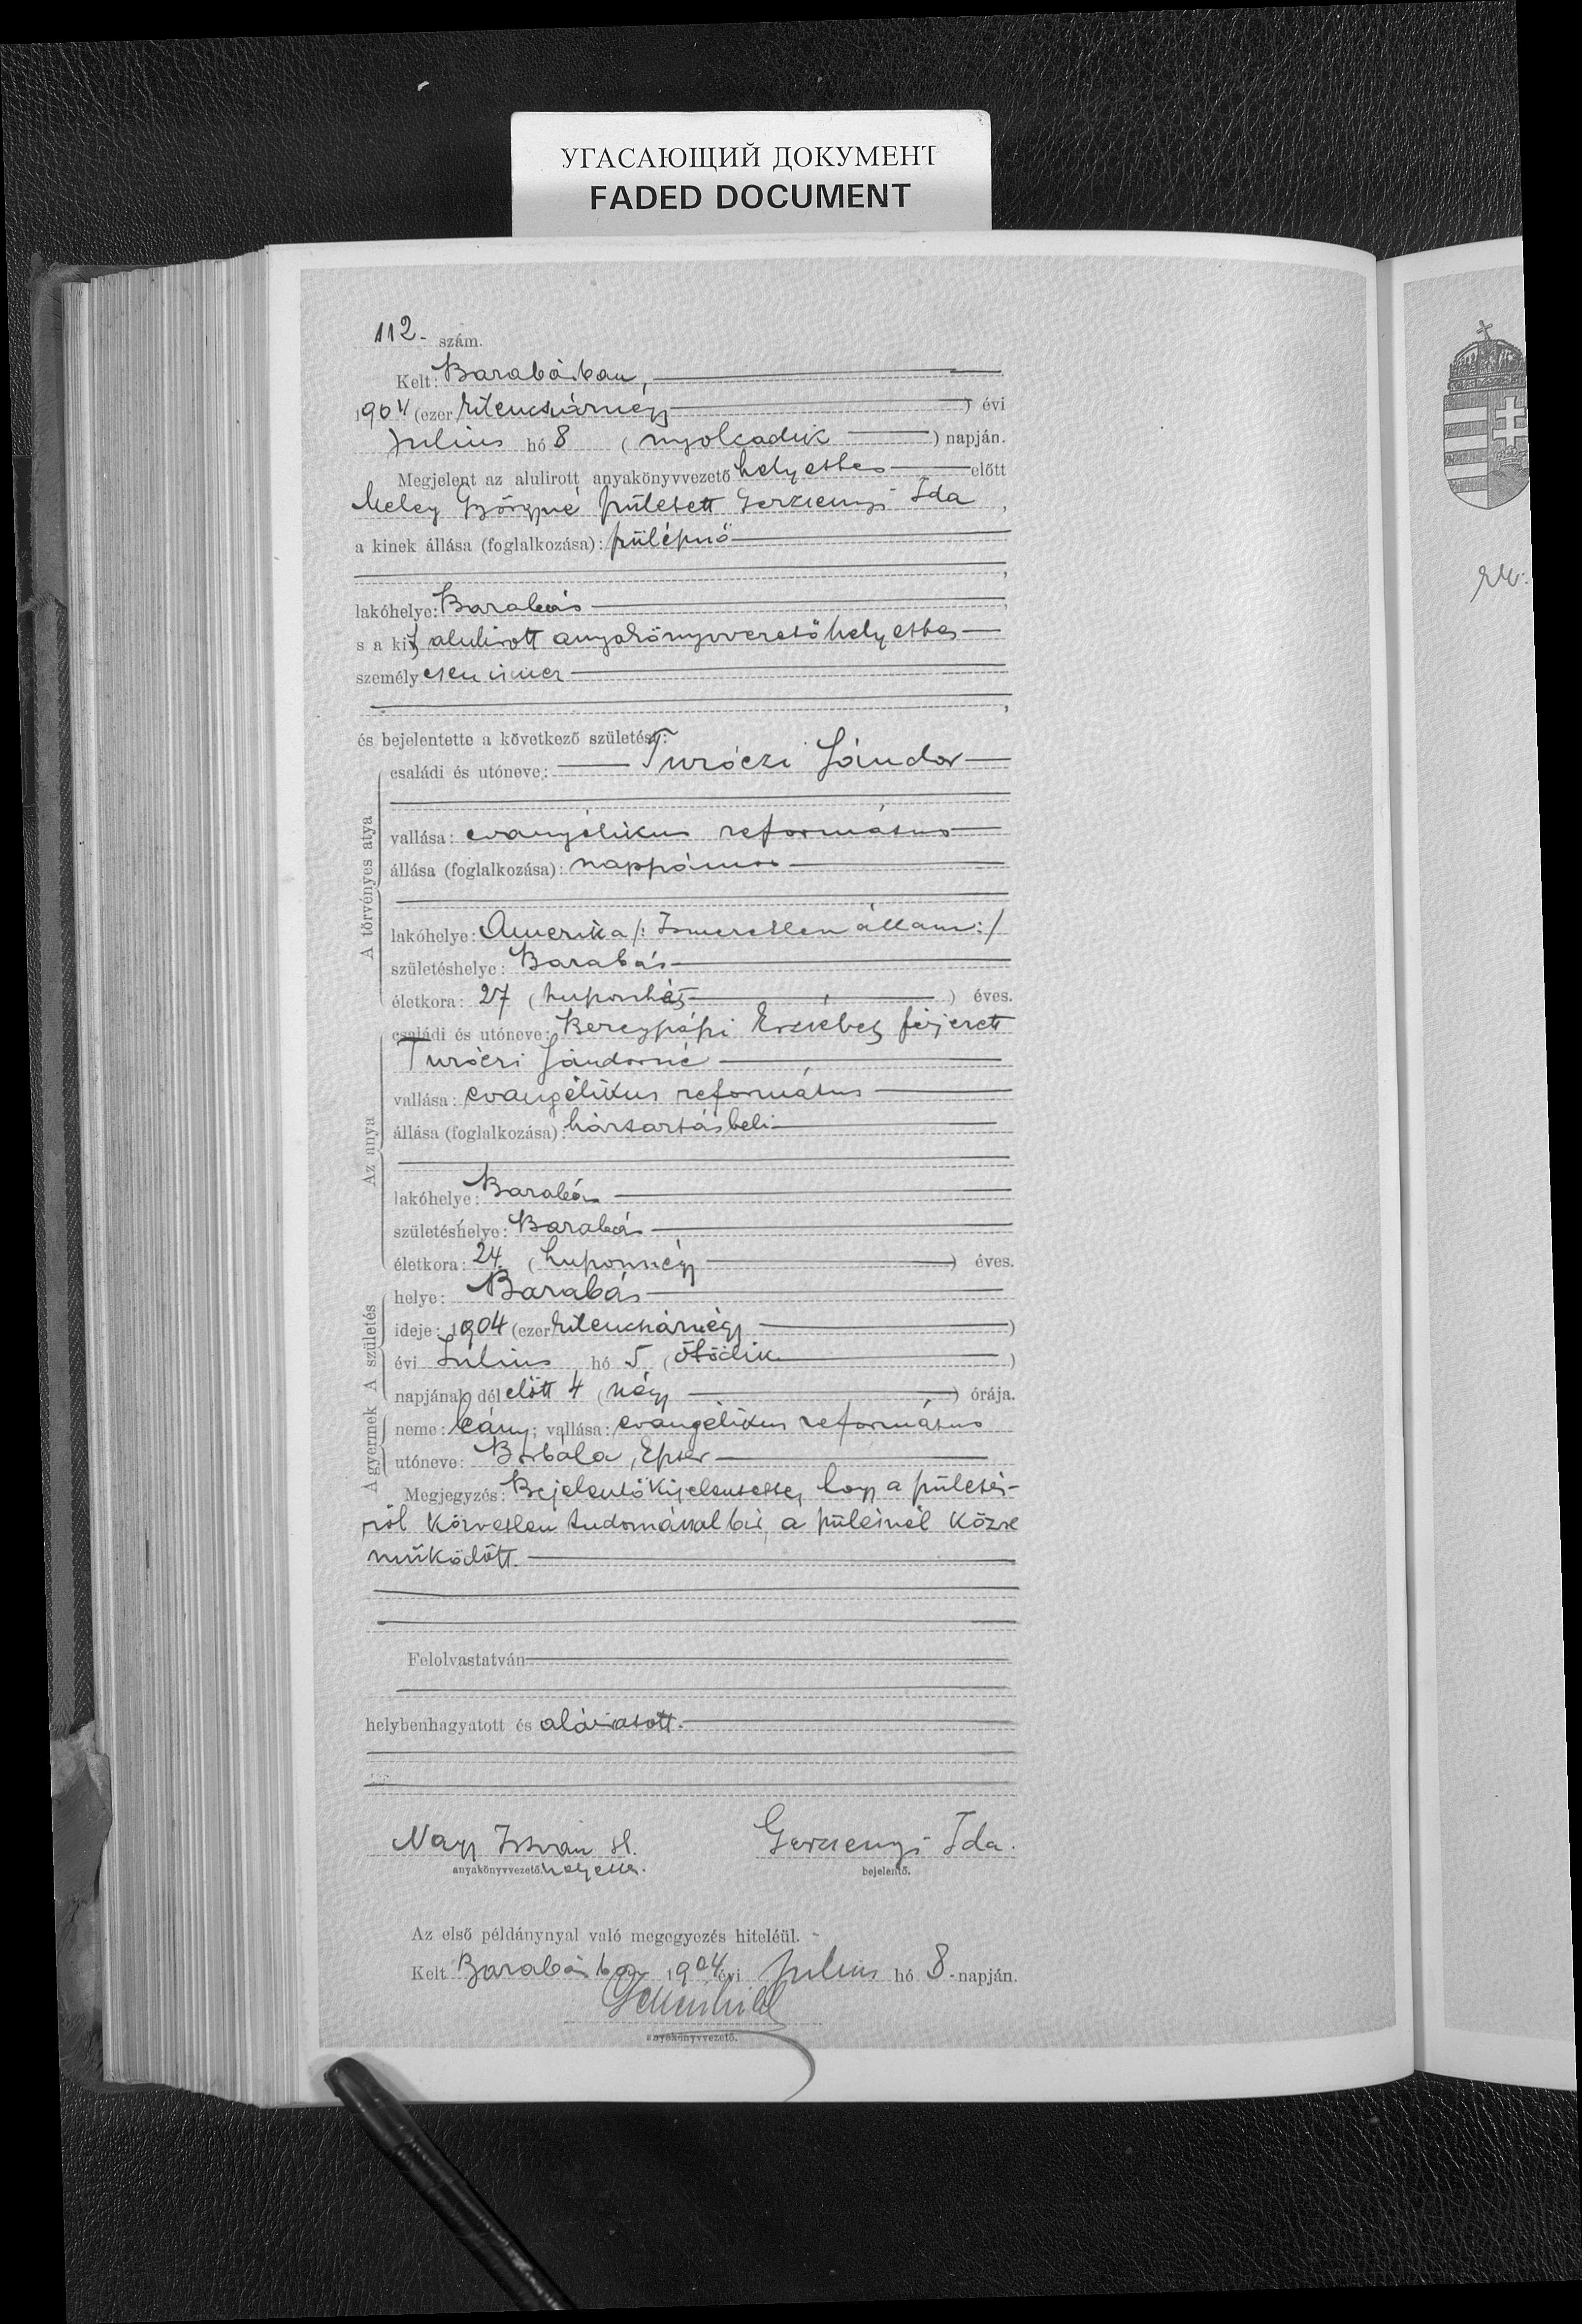 УГАСАЮЩИЙ ДОКУМЕНТ
FADED DOCUMENT
112. szám.
Kelt: Barabásban,
1904 (ezer kilencszáznégy) évi
Julius hó 8 (nyolcadik) napján.
Megjelent az alulirott anyakönyvvezető helyettes előtt
Meley Györgyné született Gerzsenyi Ida,
a kinek állása (foglalkozása): szülésznő
lakóhelye: Barabás
s a kit alulirott anyakönyvvezető helyettes
személyesen ismer
és bejelentette a következő születést:
A törvényes atya
családi és utóneve: Turóczi Sándor
vallása: evangélikus református
állása (foglalkozása): napszámos
lakóhelye: Amerika /: Ismeretlen állam :/
születéshelye: Barabás
életkora: 27 (huszonhét) éves.
Az anya
családi és utóneve: Beregpápi Erzsébet, férjezett
Turóczi Sándorné
vallása: evangélikus református
állása (foglalkozása): háztartásbeli
lakóhelye: Barabás
születéshelye: Barabás
életkora: 24 (huszonnégy) éves.
A születés
helye: Barabás
ideje: 1904 (ezer kilencszáznégy)
évi Július hó 5 (ötödik)
napjának dél előtt 4 (négy) órája.
A gyermek
neme: leány; vallása: evangélikus református
utóneve: Borbála, Eszter
Megjegyzés: Bejelentő kijelentette, hogy a születés-
ről közvetlen tudomással bír, a szülésnél közre
működött.
Felolvastatván
helybenhagyatott és aláíratott.
Nagy István
anyakönyvvezető helyettes.
Gerzsenyi Ida.
bejelentő.
Az első példánynyal való megegyezés hiteléül.
Kelt Barabásban 1904 évi Julius hó 8. napján.
anyakönyvvezető.